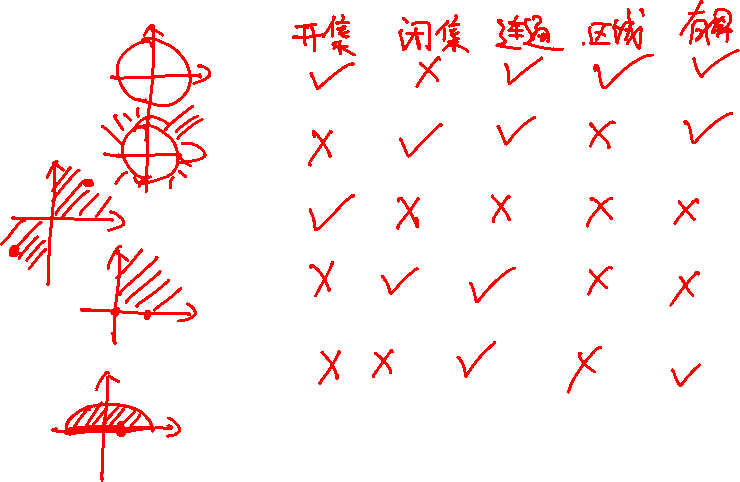 开集 闭集 连通 区域 有界
✓ × ✓ ✓ ✓
× ✓ ✓ × ✓
✓ × × × ×
× ✓ ✓ × ×
× × ✓ × ✓